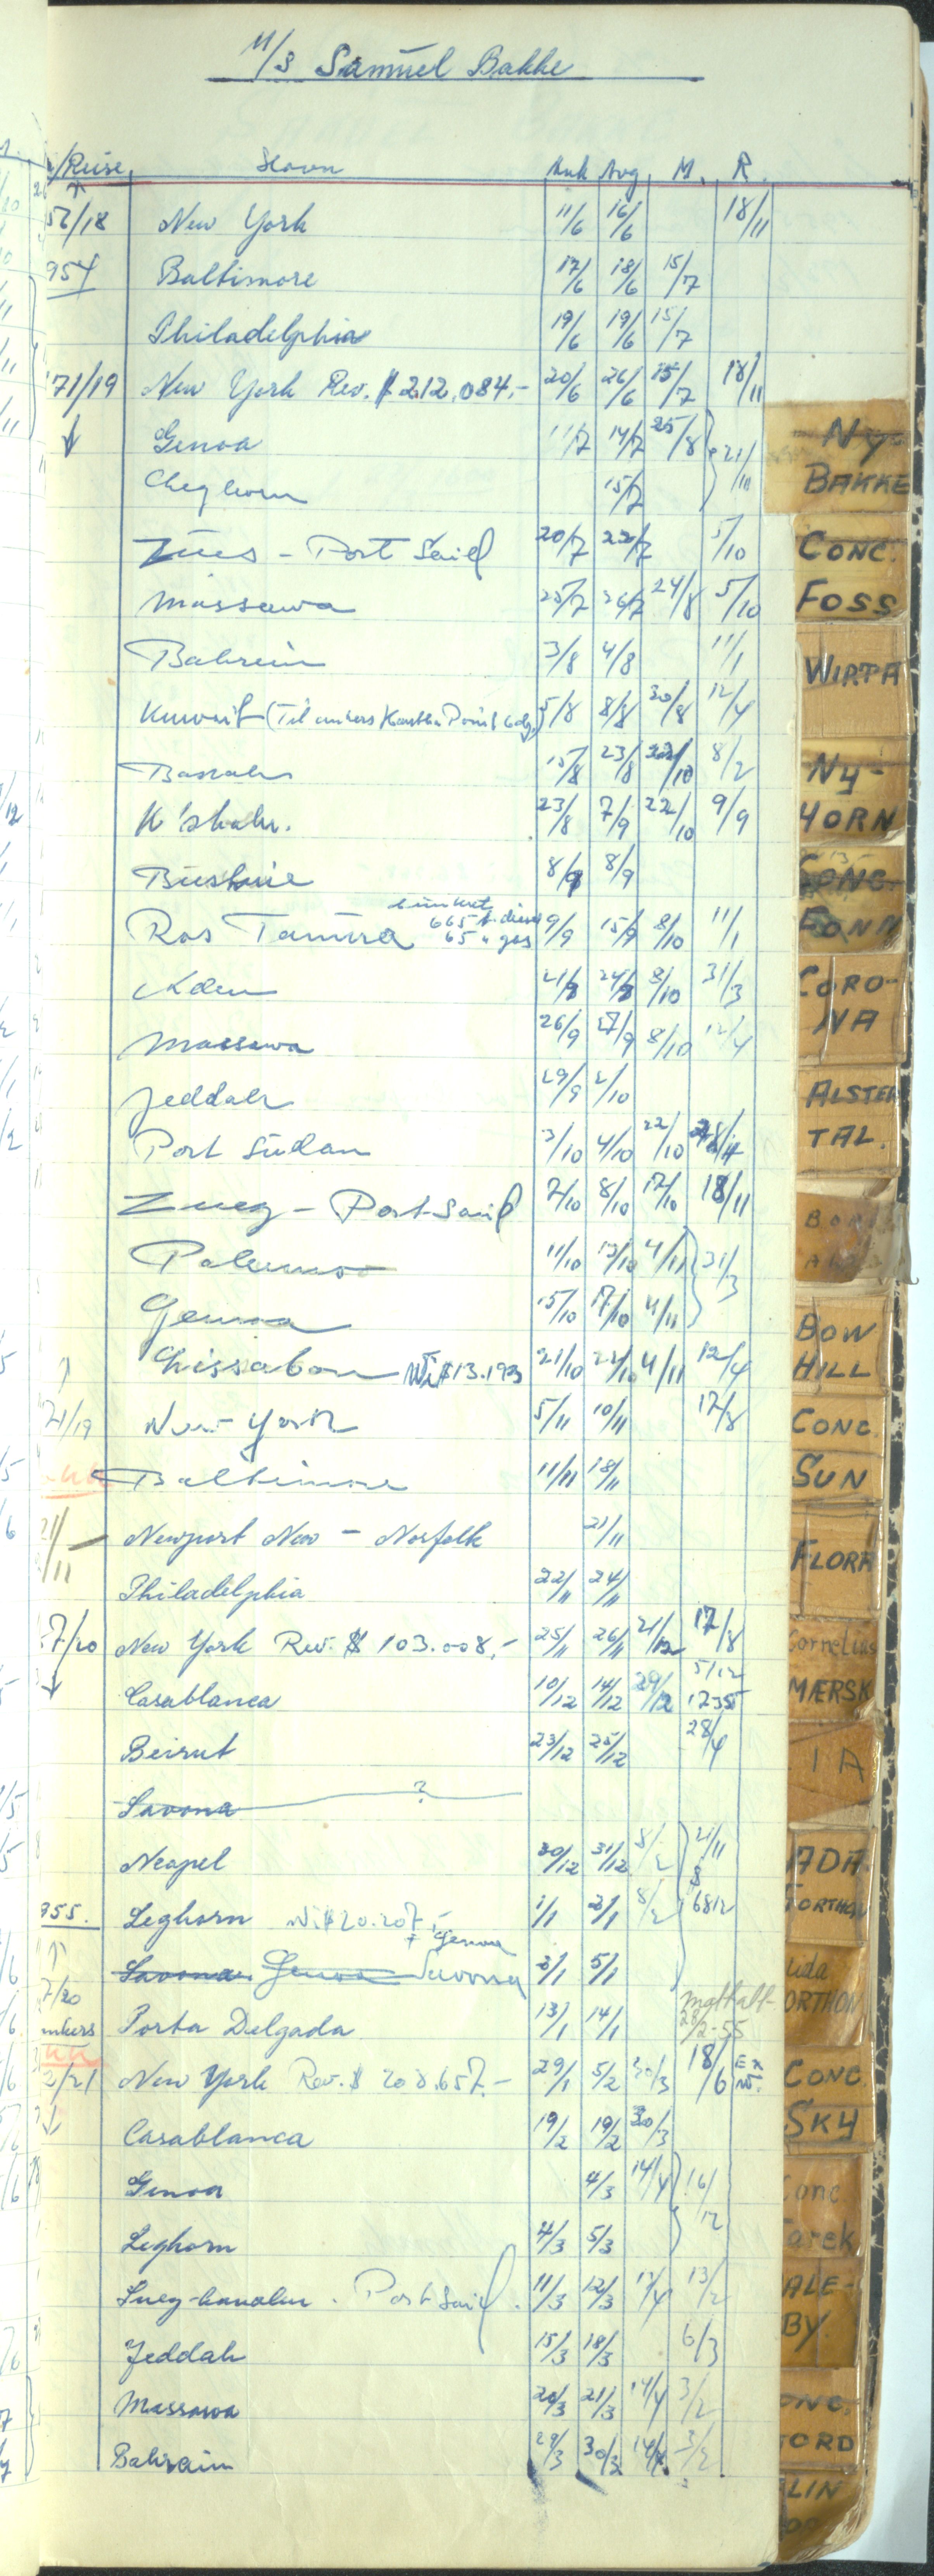 M/S Samuel Bakke
/Reise Havn Ank Avg M. R.
56/18 New York 11/6 16/6 18/11
954 Baltimore 17/6 18/6 15/7
Philadelphia 19/6 19/6 15/7
71/19 New York Rev. $ 212.084,- 20/6 26/6 15/7 18/11
Genoa 11/7 14/7 25/8 21/11
Leghorn 15/7
Zues - Port Said 20/7 22/7 5/10
Massawa 25/7 26/7 24/8 5/10
Bahrein 3/8 4/8 11/1
Kuwait 5/8 8/8 30/8 12/4
Basrah 15/8 23/8 22/10 8/2
K'shahr. 23/8 7/9 22/10 9/9
Bushire 8/9 8/9
bunkret
Ras Tanura 665 t. diesel 9/9 15/9 8/10 11/1
65 " gas
Aden 21/9 24/9 8/10 31/3
Massawa 26/9 27/9 8/10 12/4
Jeddah 29/9 2/10
Port Sudan 3/10 4/10 22/10
Zuez - Port-Said 7/10 8/10 17/10 18/11
Palermo 11/10 13/10 4/11 31/3
Genua 15/10 17/10 4/11
Lissabon $13.193 21/10 22/10 4/11 12/4
71/19 New-York 5/11 10/11 17/8
Baltimore 11/11 18/11
Newport New - Norfolk 21/11
Philadelphia 22/11 24/11
7/20 New York Rev. $ 103.008,- 25/11 26/11 21/12 17/8
Casablanca 10/12 14/12 29/12 5/12 1235
Beirut 23/12 25/12 28/4
Savona ?
Neapel 30/12 31/12 8/2 21/11
955. Leghorn $20.207,- 1/1 2/1 8/2 6812
+ Genoa
Savona Genoa Savona 3/1 5/1
7/20
Porta Delgada 13/1 14/1 28/2-55
2/21 New York Rev. $ 208.657.- 29/1 5/2 30/3 18/6
Casablanca 19/2 19/2 30/3
Genoa 4/3 14/4 16/12
Leghorn 4/3 5/3
Suez-kanalen. Port Said. 11/3 12/3 13/2
Jeddah 15/3 18/3 6/3
Massawa 20/3 21/3 14/4 3/2
Bahrain 29/3 30/3 14/4 3/2
NY-
BAKKE
CONC.
FOSS
WIRTA
NY-
HORN
CONC.
FONN
CORO-
NA
ALSTER
TAL.
BOW
HILL
CONC.
SUN
FLORA
Cornelius
MÆRSK
IA
ADA
GORTHON
Lida
GORTHON
CONC.
SKY
Conc.
Tarek
ALE-
BY.
CONC.
FJORD
LIN